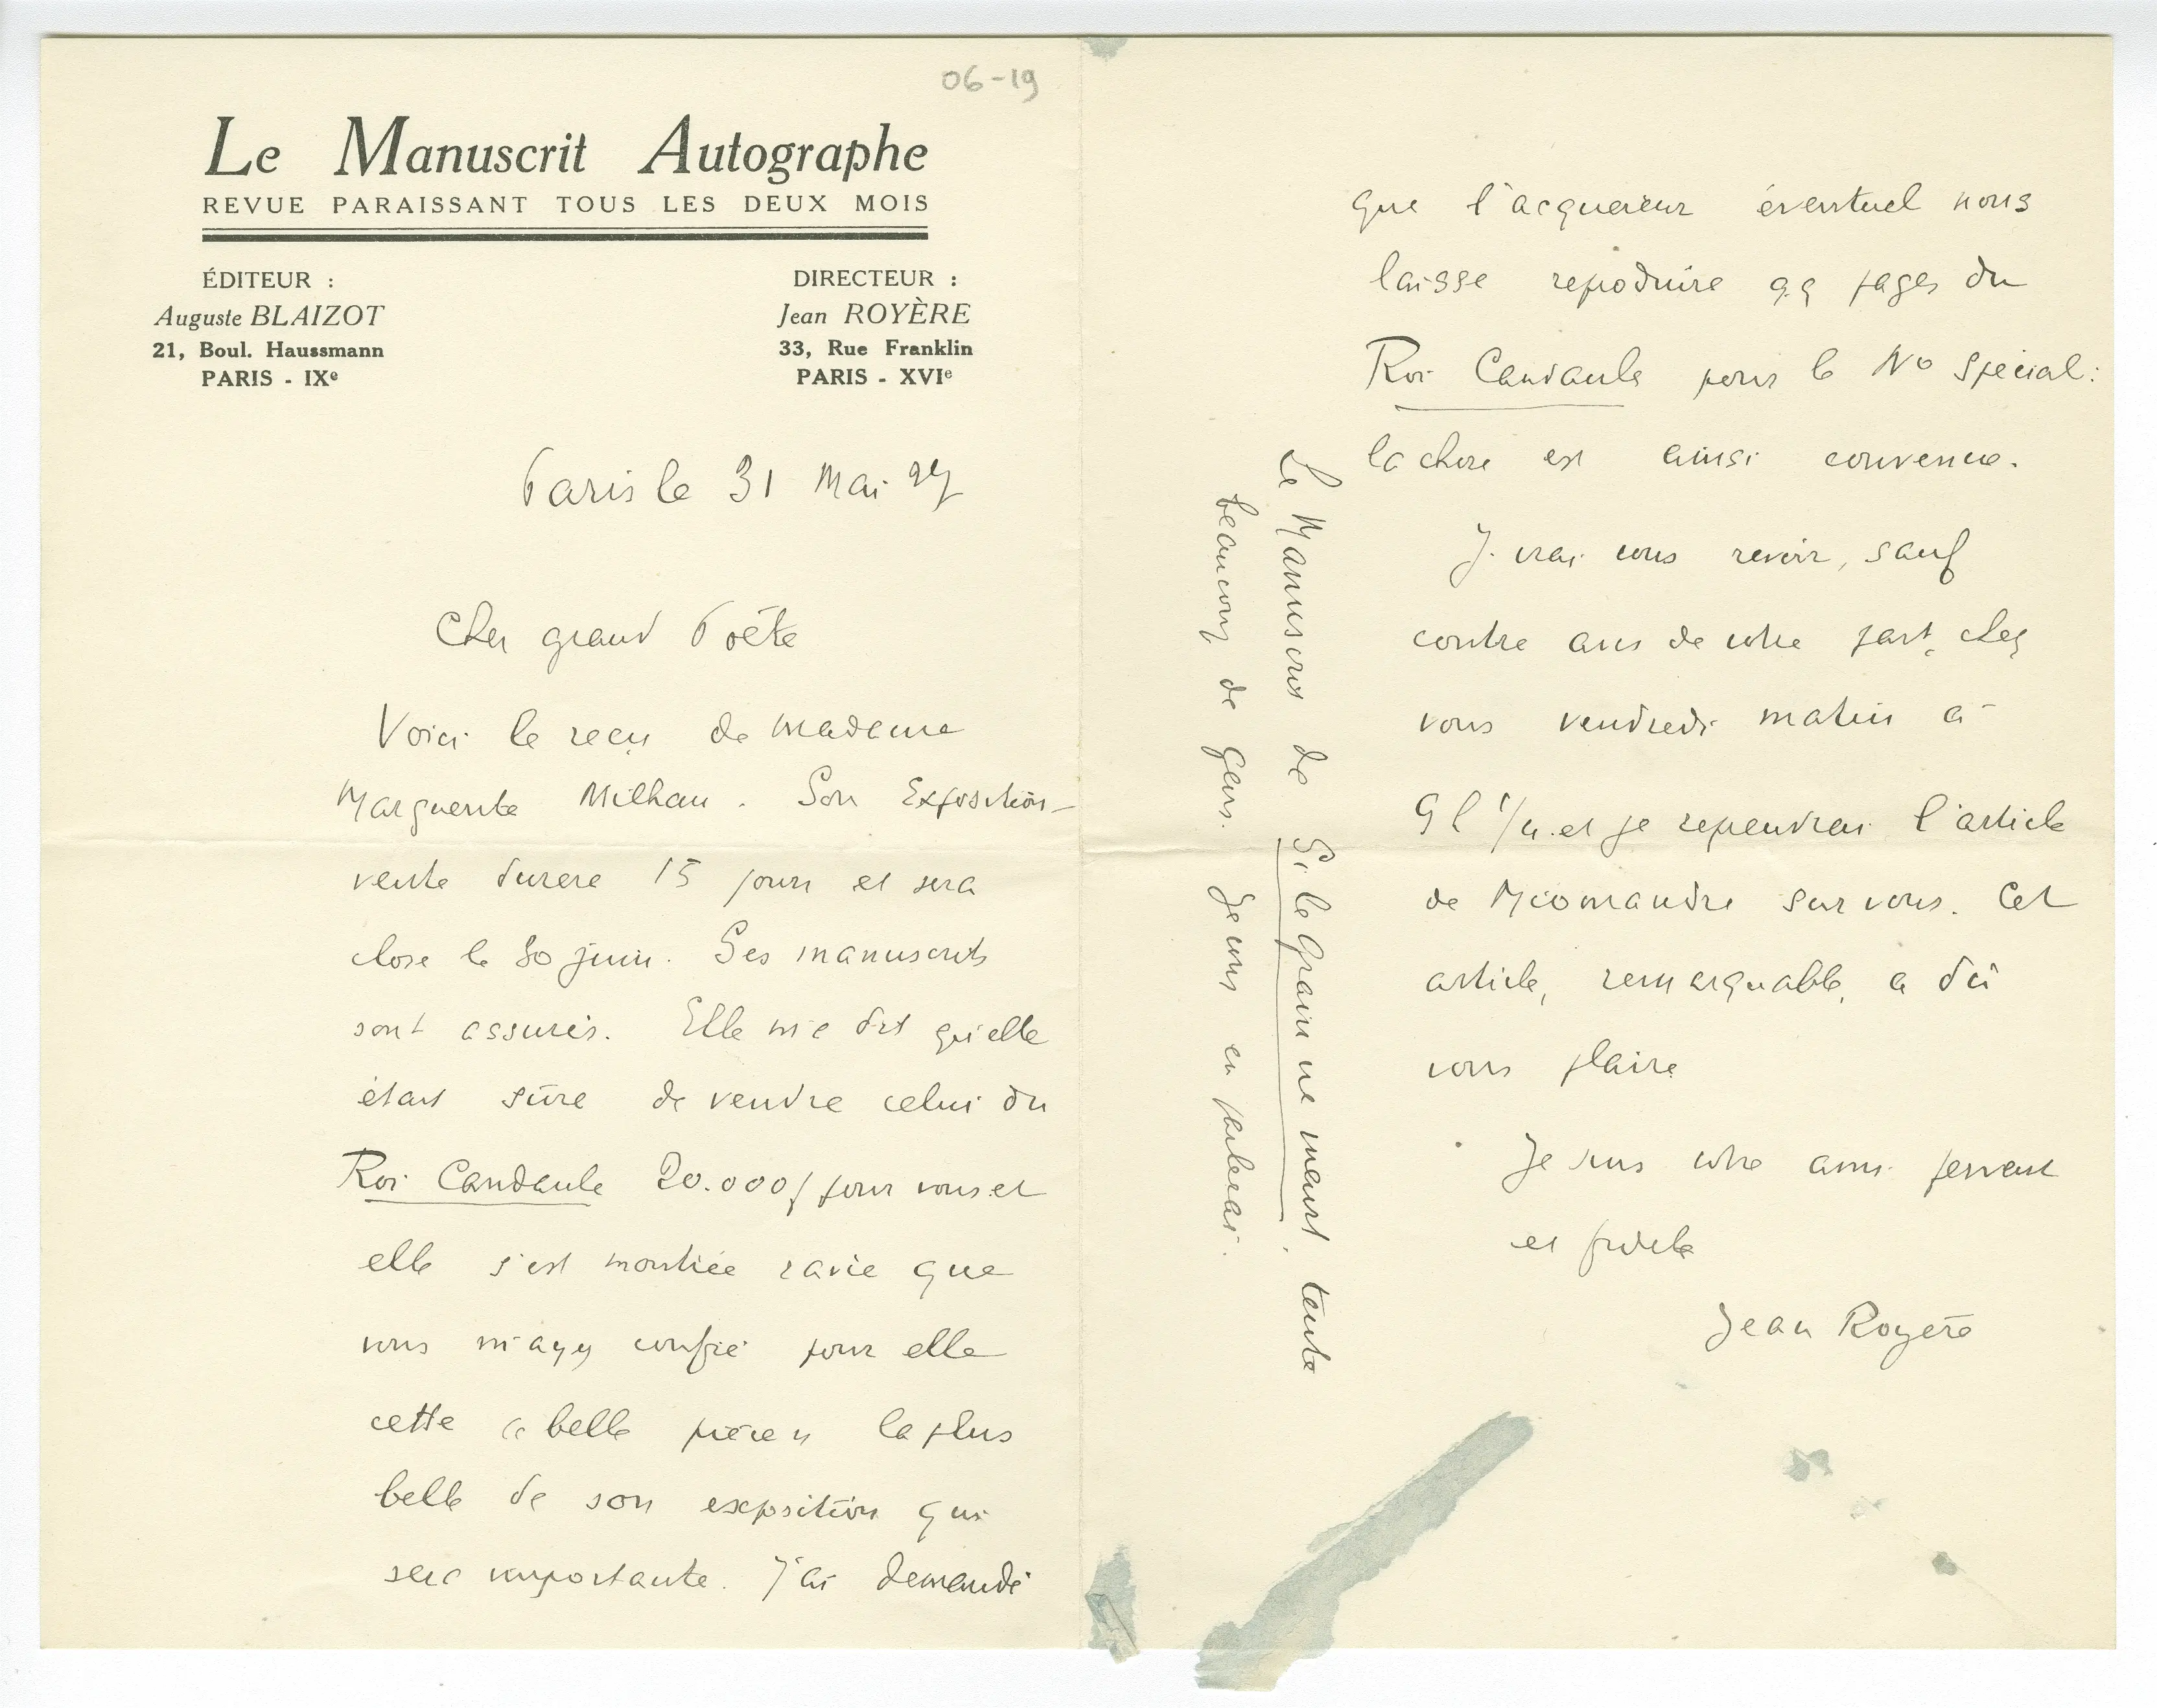 06-19
Le Manuscrit Autographe
REVUE PARAISSANT TOUS LES DEUX MOIS
ÉDITEUR :
Auguste BLAIZOT
21, Boul. Haussmann
PARIS - IXe
DIRECTEUR :
Jean ROYÈRE
33, Rue Franklin
PARIS - XVIe
Paris le 31 Mai 27
Cher grand Poëte
Voici le reçu de madame
Marguerite Milhau. Son Exposition-
vente durera 15 jours et sera
close le 30 juin. Ses manuscrits
sont assurés. Elle m'a dit qu'elle
était sûre de vendre celui du
Roi Candaule 20.000f pour vous et
elle s'est montrée ravie que
vous m'ayez confié pour elle
cette belle pièce la plus
belle de son exposition qui
sera importante. J'ai demandé
que l'acquéreur éventuel nous
laisse reproduire qq pages du
Roi Candaule pour le No spécial :
la chose est ainsi convenue.
J'irai vous revoir, sauf
contre avis de votre part, chez
vous vendredi matin à
9 h 1/4 et je reprendrai l'article
de Miomandre sur vous. Cet
article, remarquable, a dû
vous plaire
Je suis votre ami fervent
et fidèle
Jean Royère
Le Manuscrit de Si le Grain ne meurt, tente
beaucoup de gens. Je vous en parlerai.